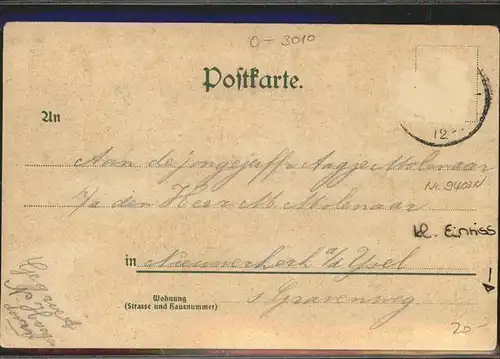 0-3010
Postkarte.
12
An
Aan de jongejuffr Aagje Molenaar
Nr. 9402N
p/a den Heer M. Molenaar
kl. Einriss
in Nieuwerkerk a/d Yssel
Wohnung
(Strasse und Hausnummer)
s Gravenweg
20-